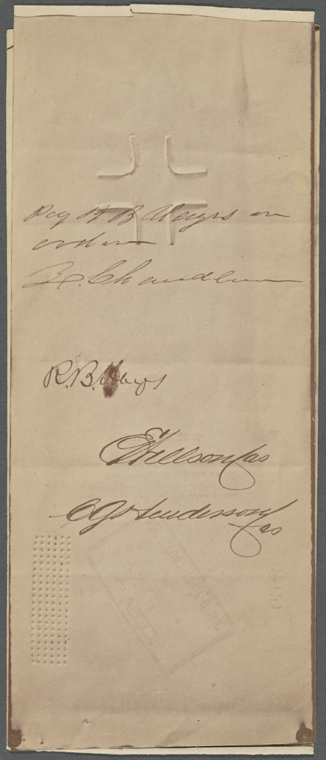 Pay R B Hayes or
order
Z. Chandler
R. B. Hayes
E Wellson Cas
C G Henderson Cas
PAID